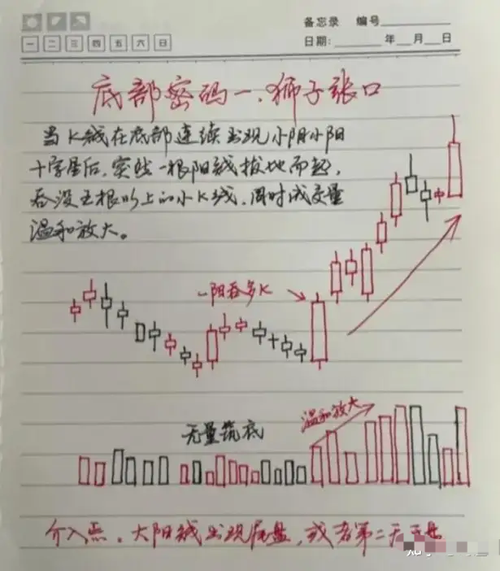 备忘录 编号
一 二 三 四 五 六 日
日期: 年 月 日
底部密码一、狮子张口
当K线在底部连续出现小阴小阳
十字星后,突然一根阳线拔地而起,
吞没五根以上的小K线,同时成交量
温和放大。
一阳吞多K
无量筑底
温和放大
介入点,大阳线出现尾盘,或者第二天